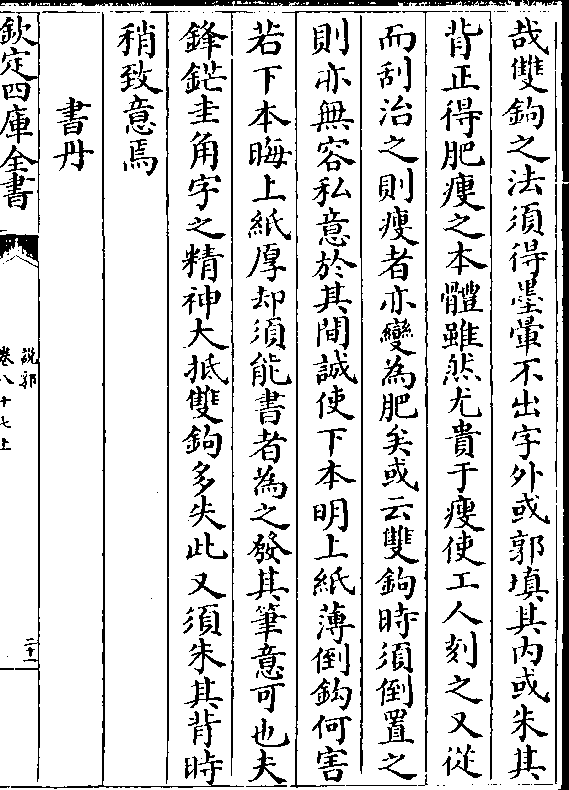 哉雙鉤之法須得墨暈不出字外或郭填其内或朱其
背正得肥瘦之本體雖然尤貴于瘦使工人刻之又從
而刮治之則瘦者亦變為肥矣或云雙鉤時須倒置之
則亦無容私意於其間誠使下本明上紙薄倒鈎何害
若下本晦上紙厚却須能書者為之發其筆意可也夫
鋒鋩圭角字之精神大抵雙鉤多失此又須朱其背時
稍致意焉
書丹
欽定四庫全書
說郛
卷八十七上
二十一